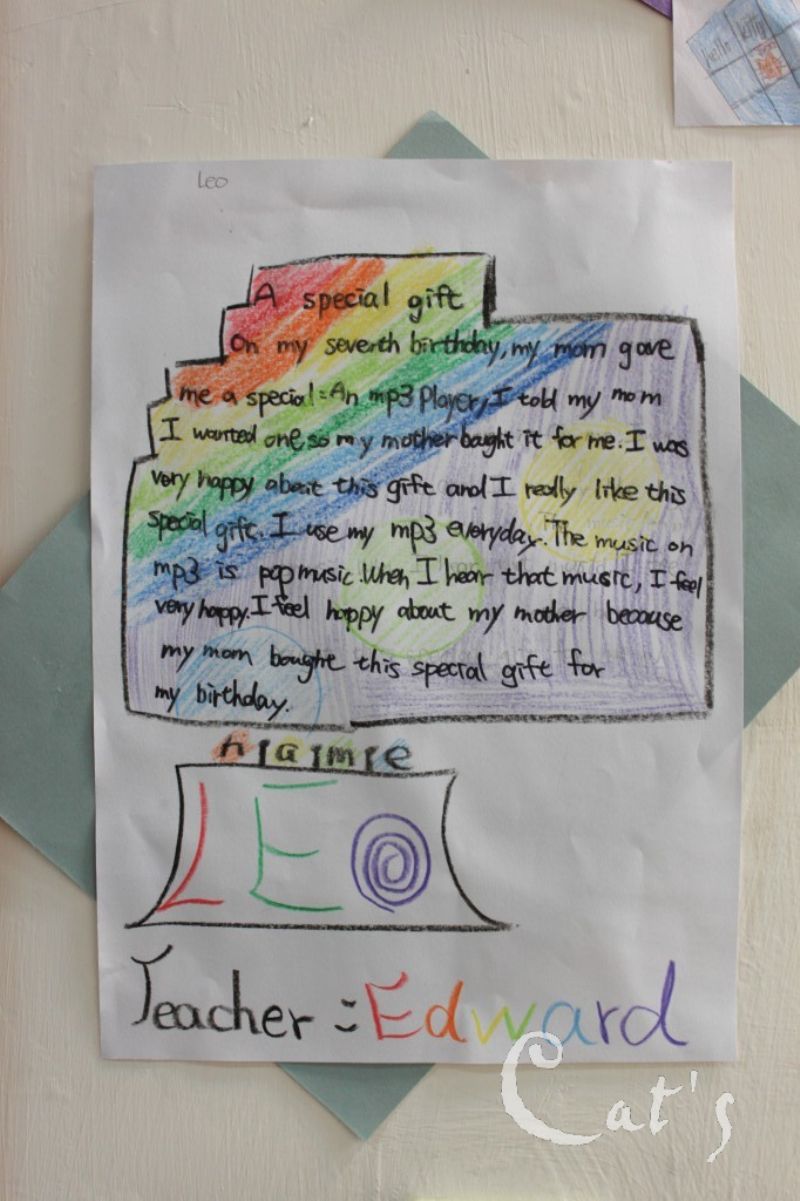 hello kitty
Leo
A special gift
On my seventh birthday, my mom gave
me a special = An mp3 player, I told my mom
I wanted one so my mother baught it for me. I was
very happy about this gift and I really like this
special gift. I use my mp3 everyday. The music on
mp3 is pop music. When I hear that music, I feel
very happy. I feel happy about my mother because
my mom bought this special gift for
my birthday.
name
LEO
Teacher = Edward
Cat's